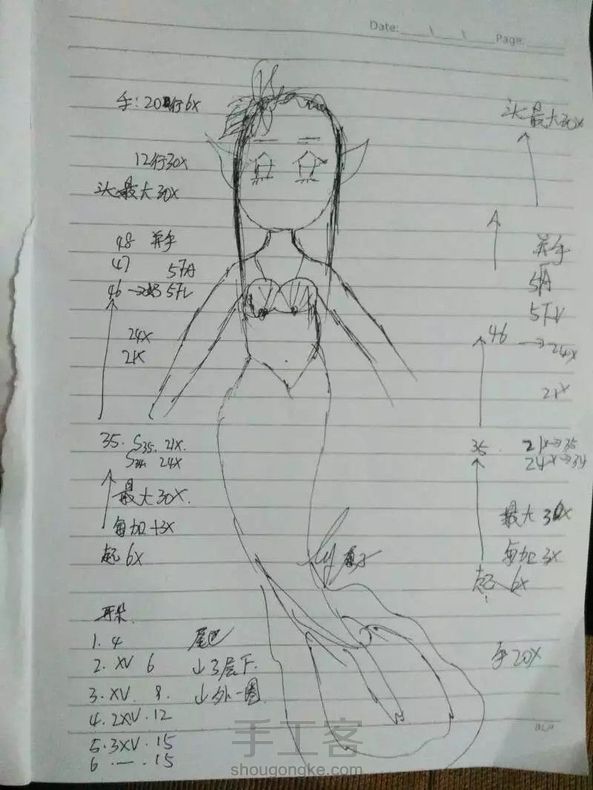 Date: Page:
手:20行6X
12行30X
头最大30X
48 并手
47 5TA
46 5TV
24X
21X
35. S35. 21X.
S34 24X
最大30X.
每加+3X
起6X
耳朵
1. 4
2. XV 6
3. XV. 8.
4. 2XV. 12
5. 3XV. 15
6 .一. 15
尾巴
↓3层下.
↓外一圈
头最大30X
并手
5TA
5TV
46 → 24X
21X
35. 21X→35
24X→34
最大30X
每加3X
起 6X
手20X
手工客
shougongke.com